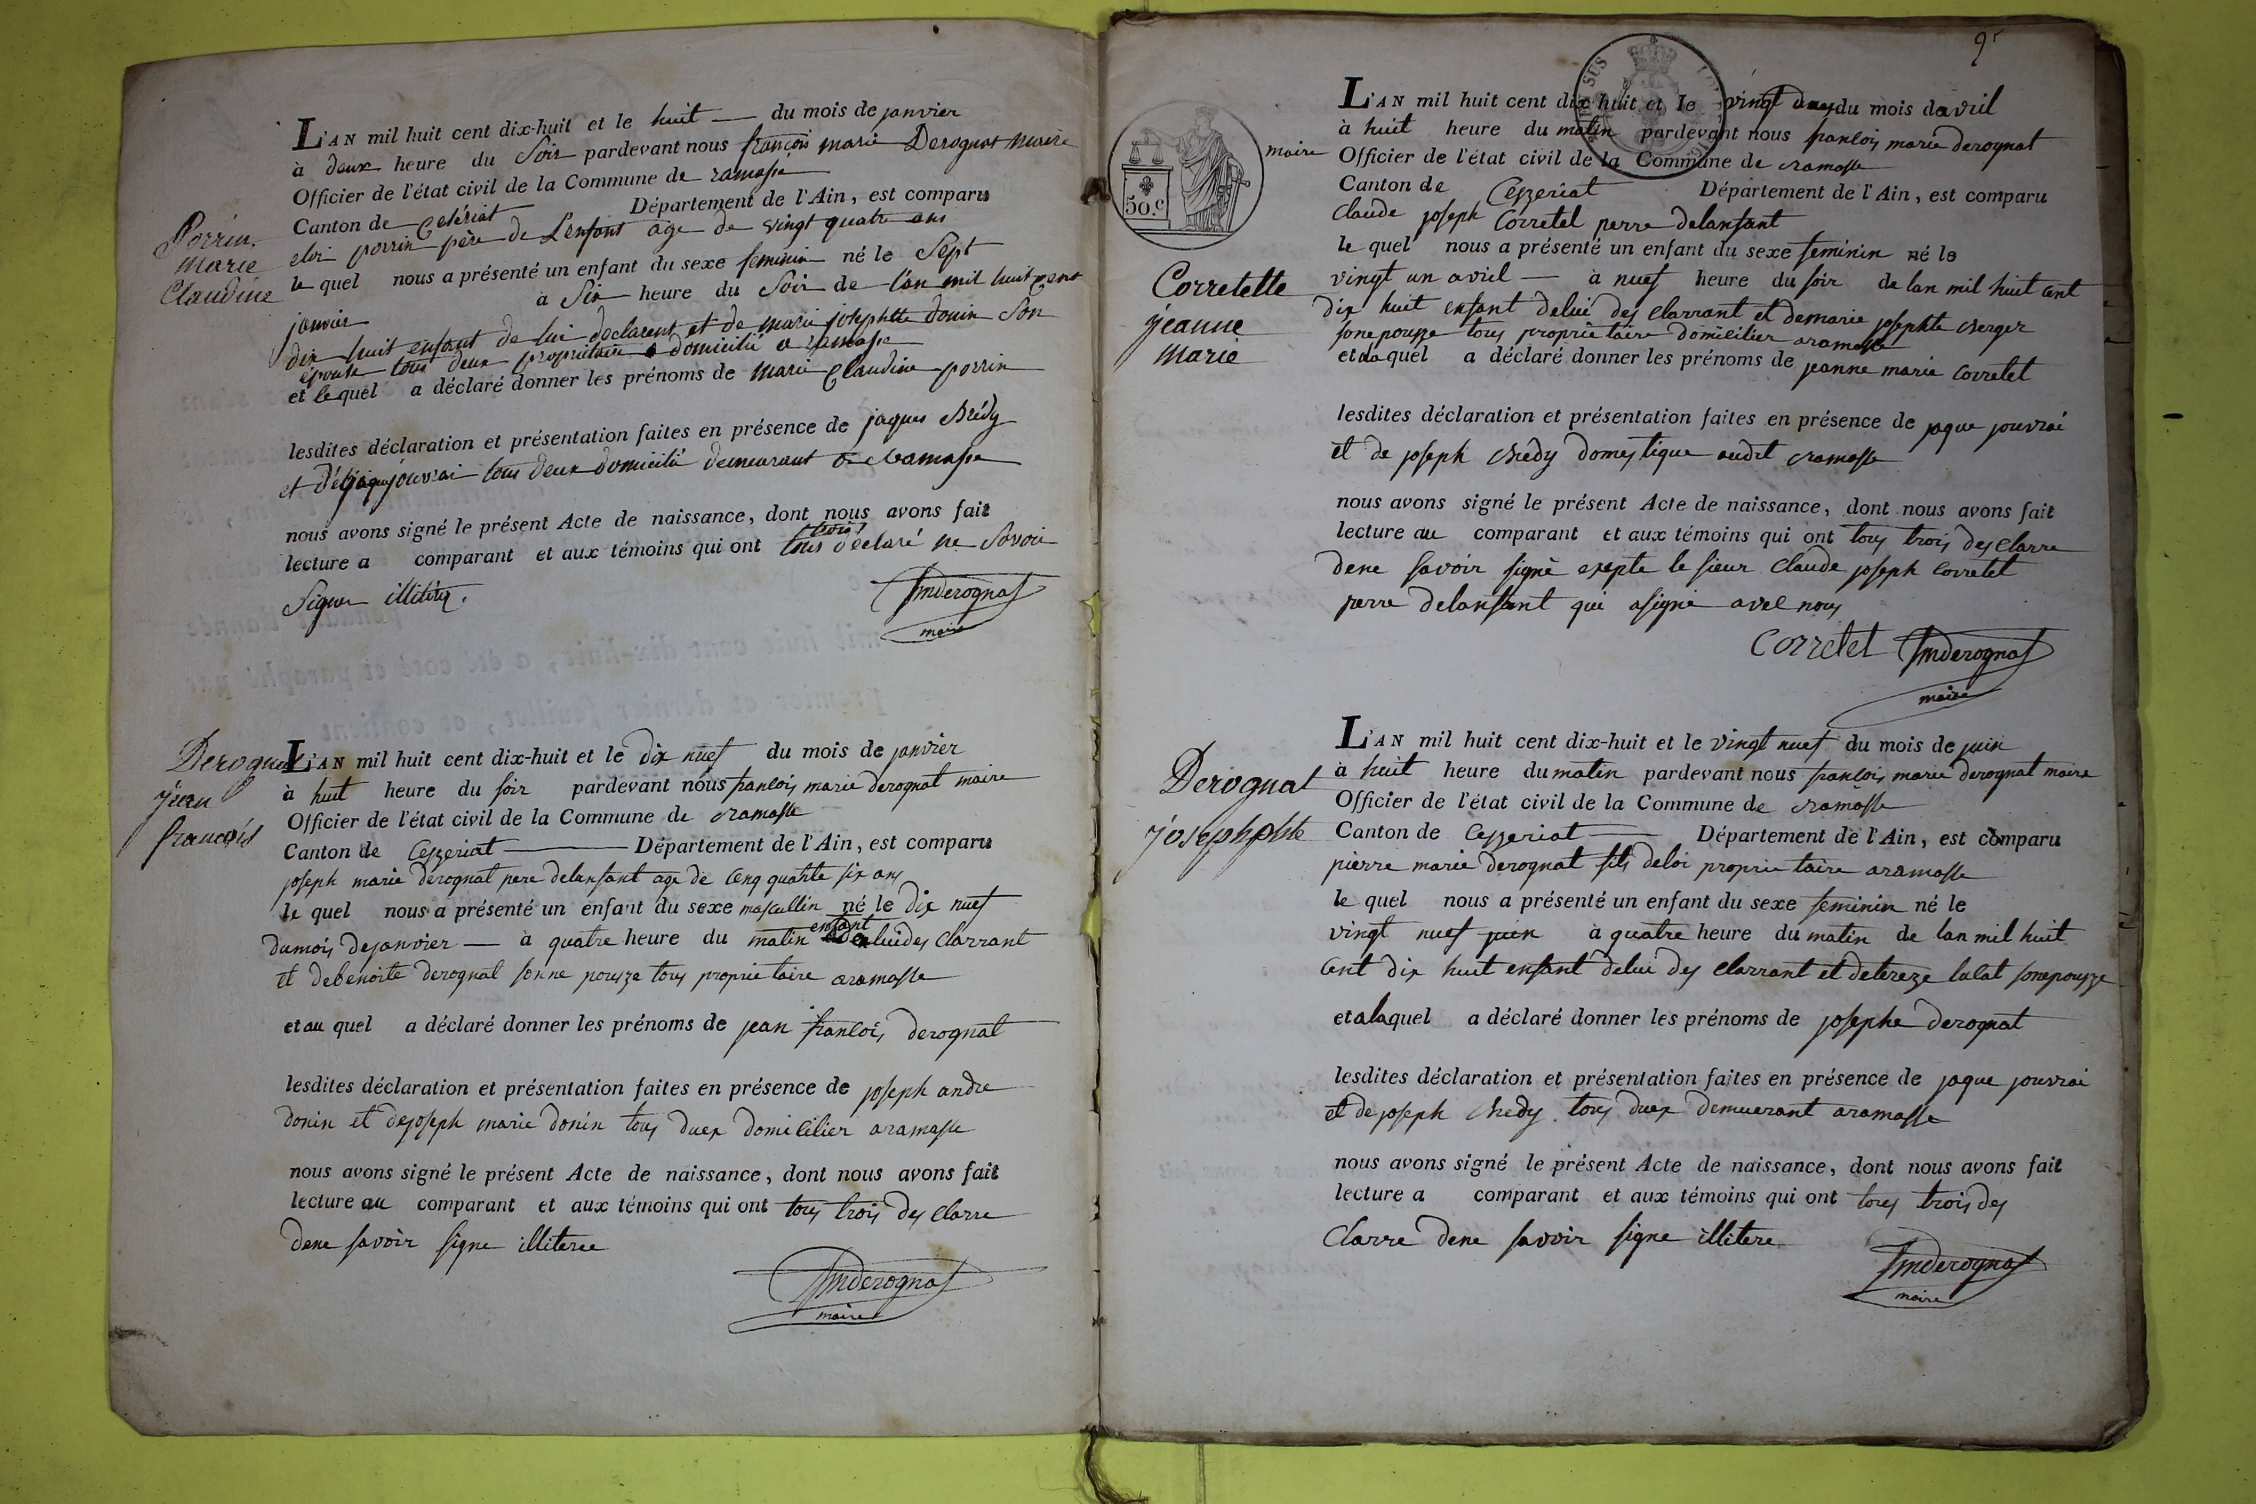 Porrin
Marie
Claudine
L'AN mil huit cent dix-huit et le huit du mois de janvier
à deux heure du Soir pardevant nous françois marie Derognat maire
Officier de l'état civil de la Commune de ramasse
Canton de Ceseriat Département de l'Ain, est comparu
eloi porrin père de L'enfant âge de vingt quatre ans
le quel nous a présenté un enfant du sexe feminin né le Sept
janvier à Six heure du Soir de l'an mil huit cent
dix huit enfant de lui declarent et de marie josephtte donin Son
épouse tous deux propriétaire domicilié a ramasse
et le quel a déclaré donner les prénoms de marie Claudine porrin
lesdites déclaration et présentation faites en présence de jaques Brédy
et jouvrai tous deux domicilié demeurant a Ramasse
nous avons signé le présent Acte de naissance, dont nous avons fait
lecture a comparant et aux témoins qui ont tous trois déclaré ne Savoir
Signer
fmderognat
maire
Derognat
jean
francois
L'AN mil huit cent dix-huit et le dix nuef du mois de janvier
à huit heure du soir pardevant nous francois marie derognat maire
Officier de l'état civil de la Commune de ramasse
Canton de Cezzeriat Département de l'Ain, est comparu
joseph marie derognat pere delansant age de cenq quatite six ans
le quel nous a présenté un enfant du sexe mascullin né le dix nuef
dumois dejanvier à quatre heure du matin enfant de luides clarrant
et debenoite derognat sonne pousze tous proprietaire aramasse
et au quel a déclaré donner les prénoms de jean francois derognat
lesdites déclaration et présentation faites en présence de joseph andre
donin et dejoseph marie donin tous duex domicilier aramasse
nous avons signé le présent Acte de naissance, dont nous avons fait
lecture au comparant et aux témoins qui ont tous trois des clarre
dene savoir signe illiteree
fmderognat
maire
9
50.c
Corretette
jeanne
Marie
L'AN mil huit cent dix-huit et le vingt duex du mois davril
à huit heure du matin pardevant nous francois marie derognat
maire Officier de l'état civil de la Commune de ramasse
Canton de Cezzeriat Département de l'Ain, est comparu
Claude joseph Corretet perre delansant
le quel nous a présenté un enfant du sexe feminin né le
vingt un avril à nuef heure du soir de lan mil huit cent
dix huit enfant delui des clarrant et demarie josephte Berger
sonepousze tous proprietaire domicilier aramasse
et ala quel a déclaré donner les prénoms de jeanne marie corretet
lesdites déclaration et présentation faites en présence de jaque jouvrai
et de joseph Bredy domestique audit ramasse
nous avons signé le présent Acte de naissance, dont nous avons fait
lecture au comparant et aux témoins qui ont tous trois des clarre
dene savoir signé exepte le sieur Claude joseph Corretet
perre delansant qui asigné avec nous
Corretet fmderognat
maire
Derognat
josephphte
L'AN mil huit cent dix-huit et le vingt nuef du mois de juin
à huit heure du matin pardevant nous francois marie derognat maire
Officier de l'état civil de la Commune de ramasse
Canton de Cezzeriat Département de l'Ain, est comparu
pierre marie derognat fils deloi proprietaire aramasse
le quel nous a présenté un enfant du sexe feminin né le
vingt nuef juen à quatre heure du matin de lan mil huit
cent dix huit enfant delui des clarrant et detereze lalat sonepousze
et ala quel a déclaré donner les prénoms de josephe derognat
lesdites déclaration et présentation faites en présence de jaque jouvrai
et de joseph Bredy tous duex demuerant aramasse
nous avons signé le présent Acte de naissance, dont nous avons fait
lecture a comparant et aux témoins qui ont tous trois des
Clarre dene savoir signe illitere
fmderognat
maire